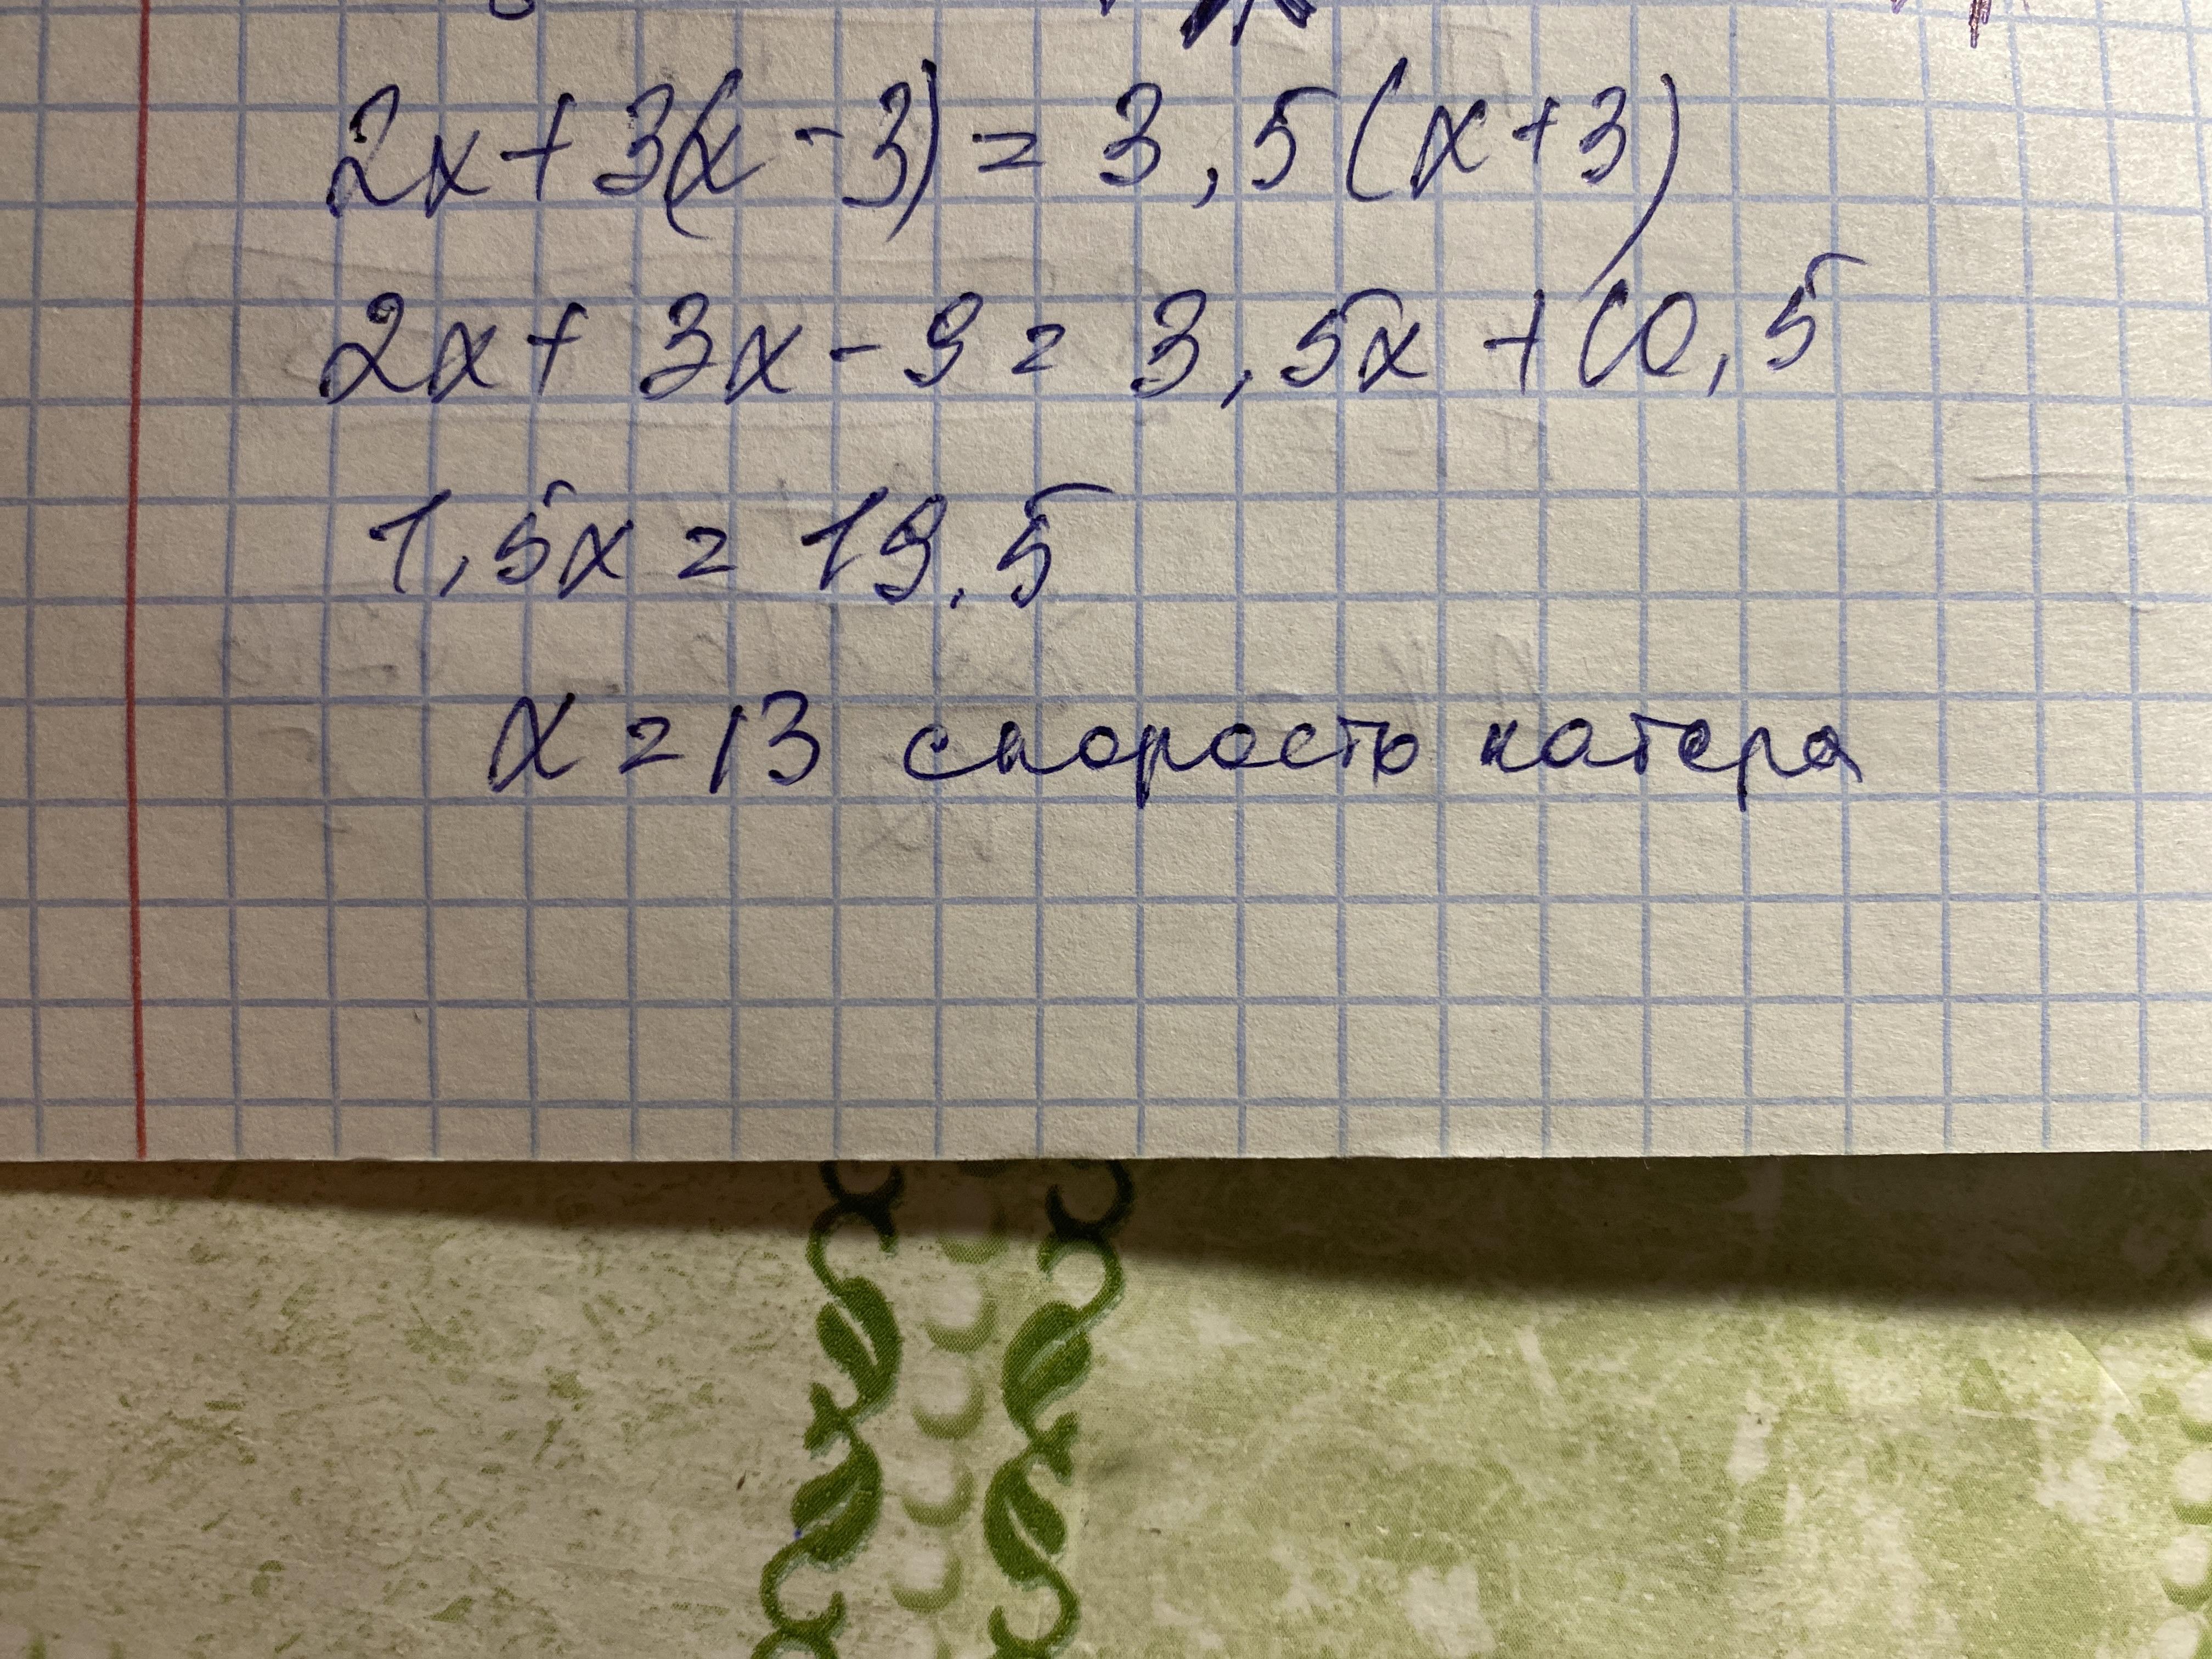 2x + 3(x - 3) = 3,5(x + 3)
2x + 3x - 9 = 3,5x + 10,5
1,5x = 19,5
x = 13 скорость катера